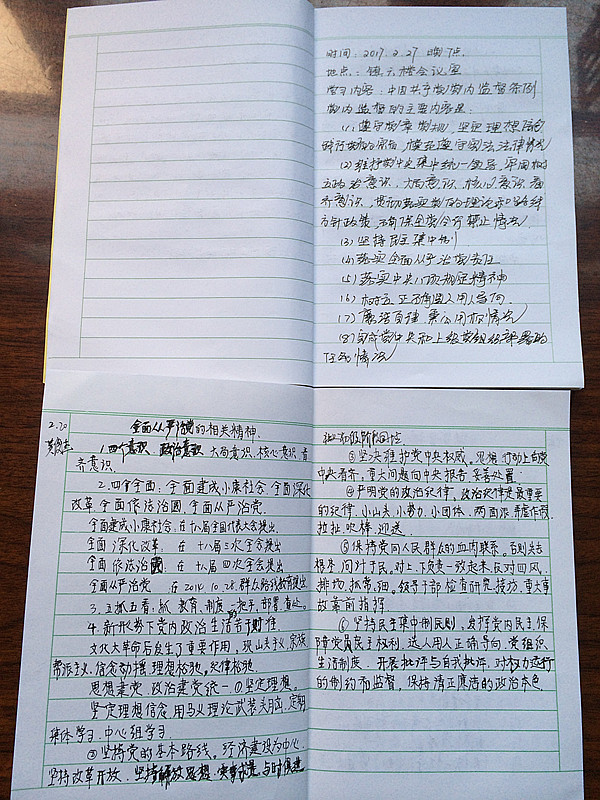 时间：2017.2.27 晚7点.
地点：镇六楼会议室
学习内容：中国共产党党内监督条例
党内监督的主要内容是
(1) 遵守党章党规，坚定理想信念
践行党的宗旨，模范遵守宪法法律情况
(2) 维护党中央集中统一领导，牢固树
立政治意识、大局意识、核心意识、看
齐意识，贯彻落实党的理论和路线
方针政策，确保全党令行禁止情况
(3) 坚持民主集中制
(4) 落实全面从严治党责任
(5) 落实中央八项规定精神
(6) 树立正确选人用人导向.
(7) 廉洁自律 秉公用权情况
(8) 完成党中央和上级党组织部署的
任务情况
2.20 全面从严治党的相关精神.
1.四个意识 政治意识 大局意识、核心意识、看
齐意识.
2.四个全面：全面建成小康社会、全面深化
改革、全面依法治國、全面从严治党.
全面建成小康社会：在十八届全国代表大会提出.
全面深化改革. 在十八届三次全会提出
全面依法治國. 在十八届四次全会提出
全面从严治党 在2014.10.28.群众路线教育提出
3.五抓五看：抓 教育、制度、一把手、部署、查处.
4.新形势下党内政治生活若干准则.
文化大革命后发生了重要作用，现山头主义、宗族
帮派主义，信念动摇 理想检验，纪律检验.
思想建党、政治建党统一 ①坚定理想.
坚定理想信念 用马义理论武装头脑. 定期
集体学习. 中心组学习.
②坚持党的基本路线。经济建设为中心.
坚持改革开放. 坚持解放思想 实事求是 与时俱进
③坚决维护党中央权威，思想 行动上自觉
中央看齐，重大问题向中央报告 妥善处置.
④严明党的政治纪律，政治纪律是最重要
的纪律，小山头、小势力、小团体、两面派 弄虚作假
拉扯、吹捧、迎送
⑤保持党同人民群众的血肉联系。否则失去
根本. 问对于民，对上下负责一致起来. 反对四风.
排场、抓常、细，领导干部 检查研究、接访、重大事
故靠前指挥.
⑥坚持民主集中制原则，发挥党内民主、保
障党员民主权利、选人用人正确导向、党组织
生活制度、开展批评与自我批评、对权力运行
的制约和监督，保持清正廉洁的政治本色